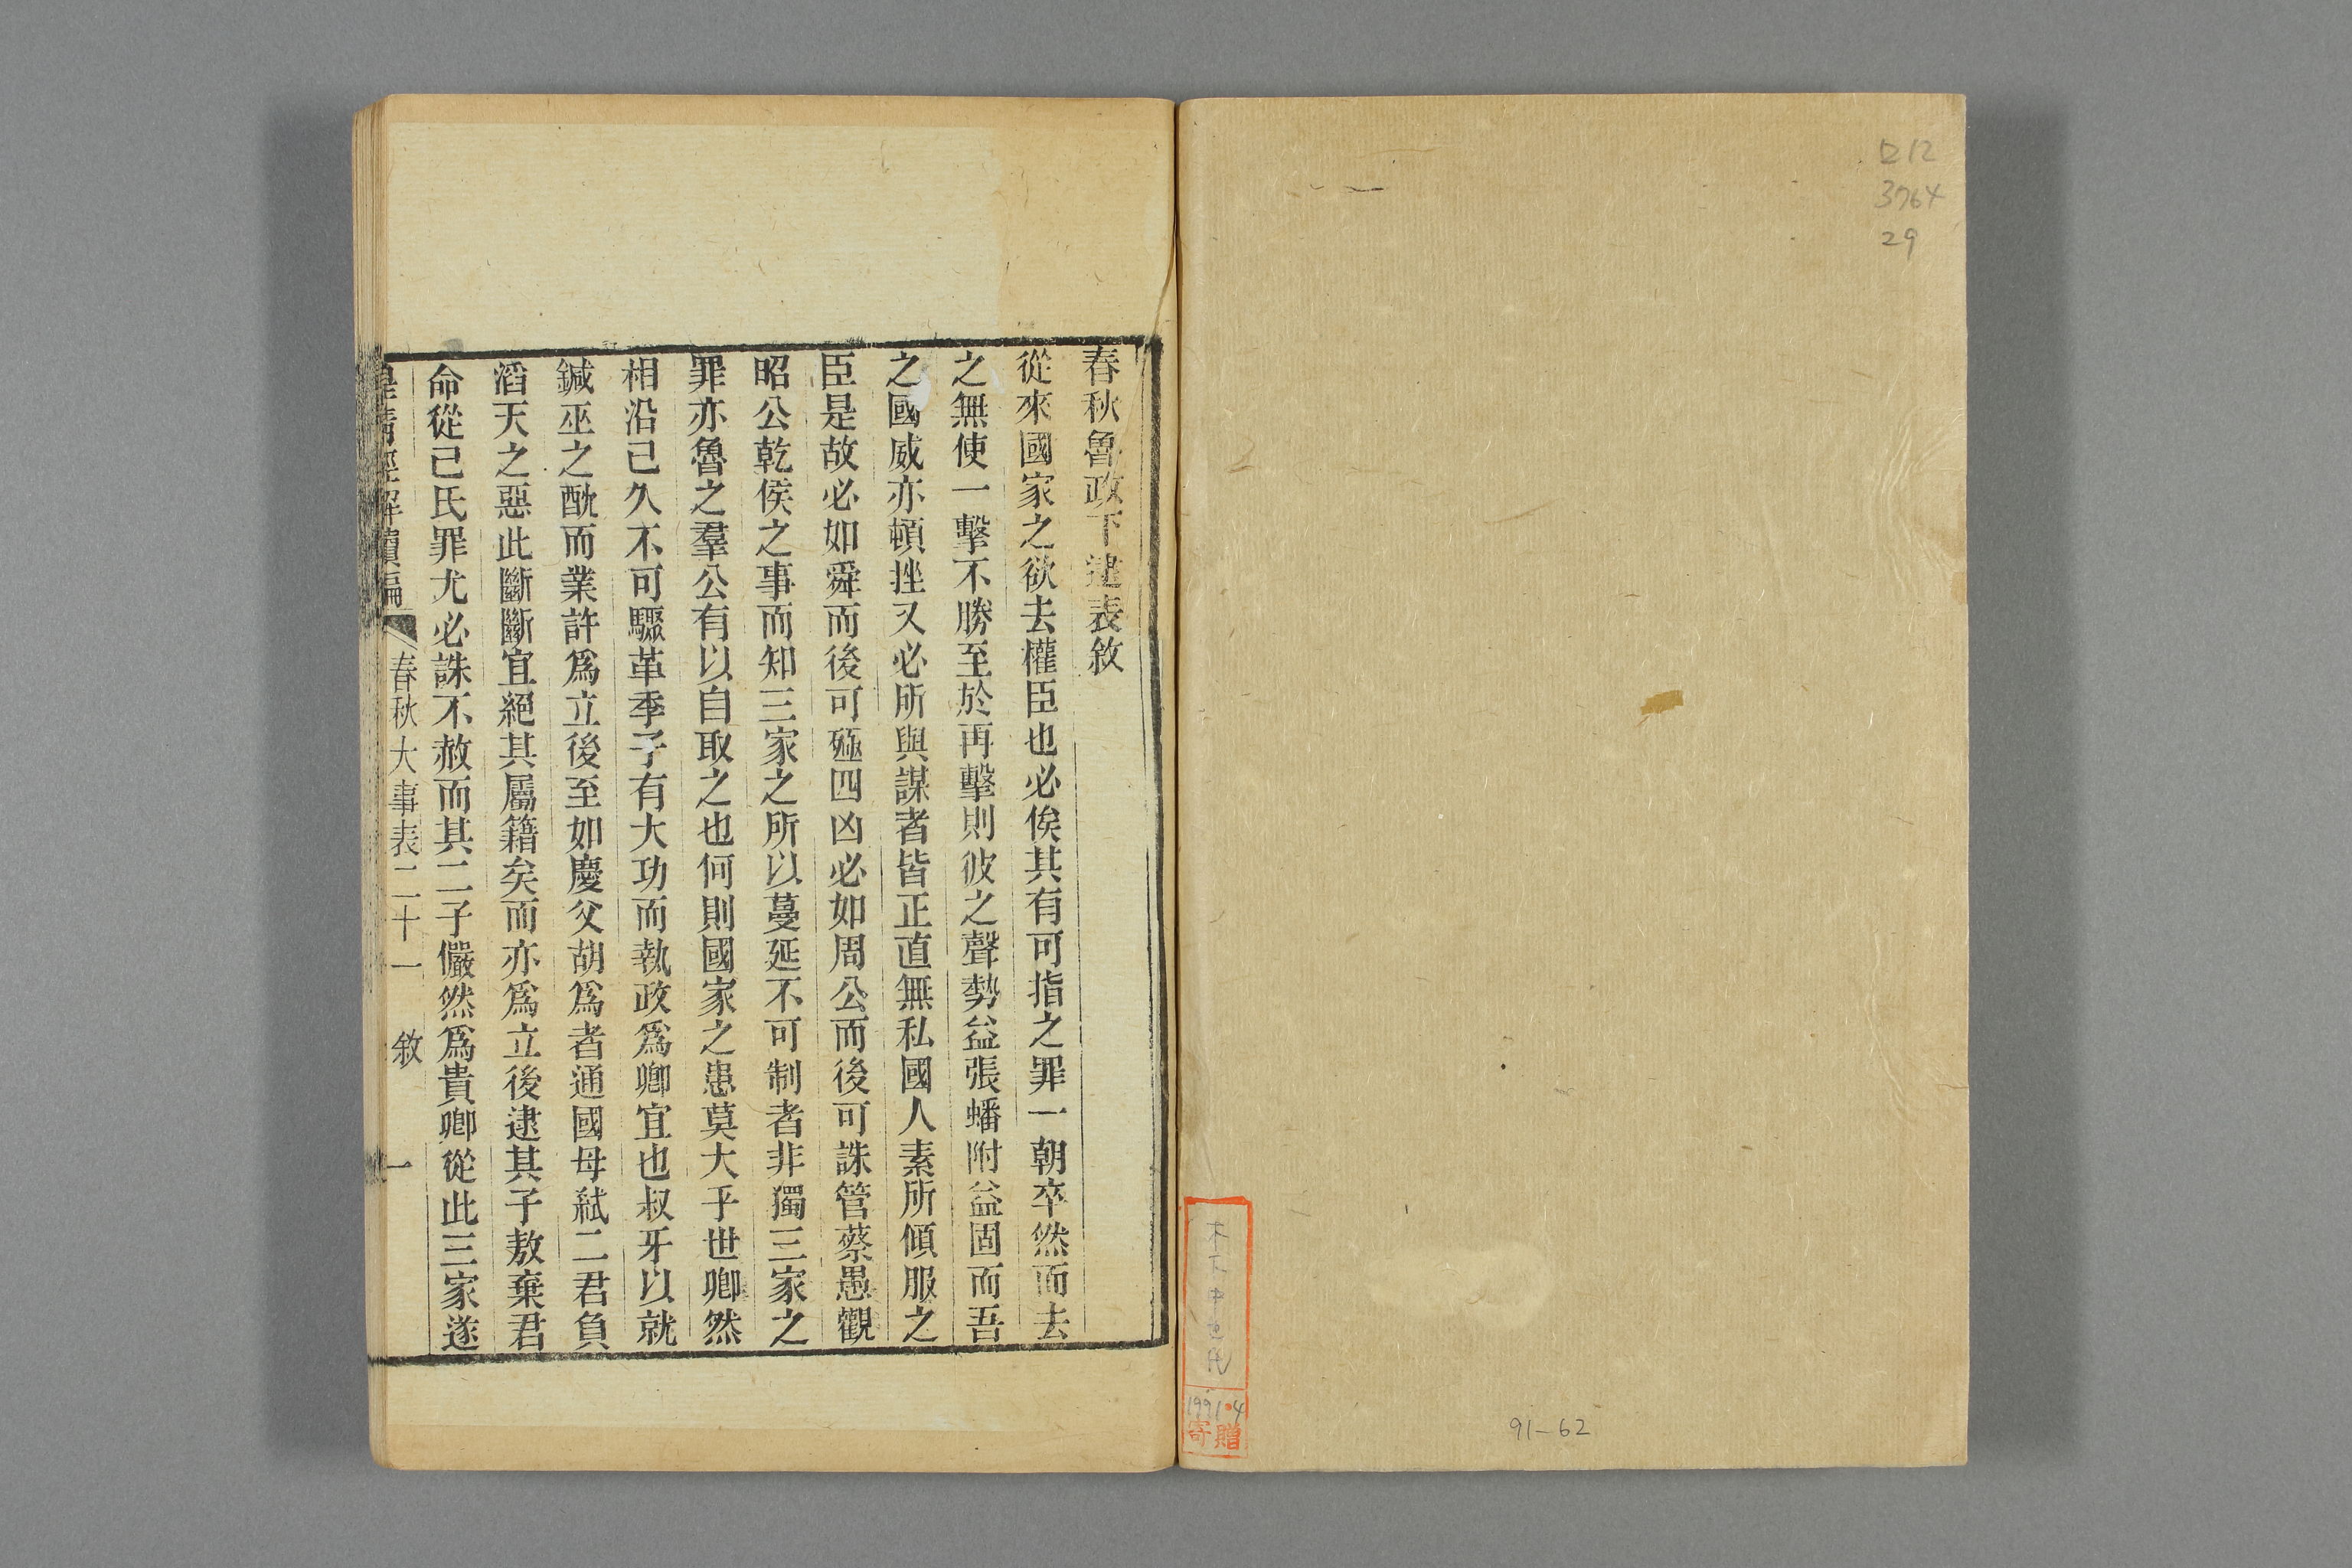 口12
3764
29
寄贈
1991.4
91-62
春秋魯政下逮表敘
從來國家之欲去權臣也必俟其有可指之罪一朝卒然而去
之無使一擊不勝至於再擊則彼之聲勢益張蟠附益固而吾
之國威亦頓挫又必所與謀者皆正直無私國人素所傾服之
臣是故必如舜而後可殛四凶必如周公而後可誅管蔡愚觀
昭公乾侯之事而知三家之所以蔓延不可制者非獨三家之
罪亦魯之羣公有以自取之也何則國家之患莫大乎世卿然
相沿己久不可驟革季子有大功而執政爲卿宜也叔牙以就
鍼巫之酖而業許爲立後至如慶父胡爲者通國母弑二君負
滔天之惡此斷斷宜絕其屬籍矣而亦爲立後逮其子敖棄君
命從己氏罪尤必誅不赦而其二子儼然爲貴卿從此三家遂
皇清經解續編 春秋大事表二十一 敘 一